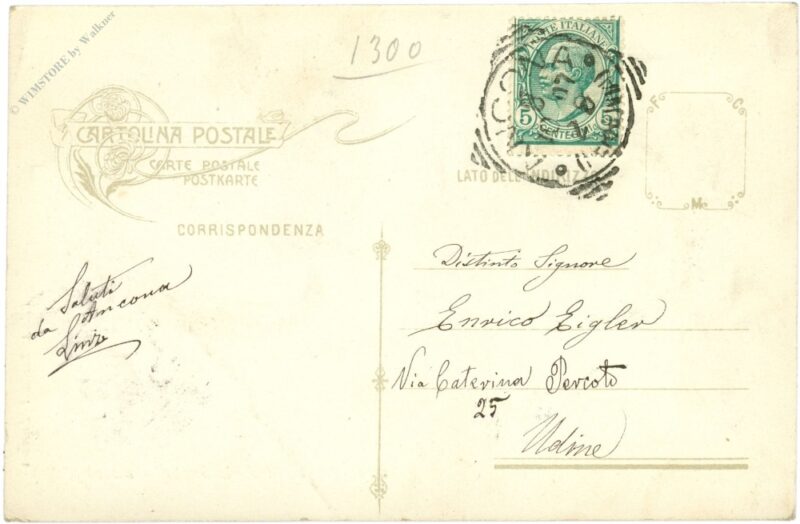 © WIMSTORE by Walkner
1300
CARTOLINA POSTALE
CARTE POSTALE
POSTKARTE
CORRISPONDENZA
POSTE ITALIANE
5 5
CENTESIMI
ANCONA
LATO DELL'INDIRIZZO
F C
M
Saluti
da Ancona
Distinto Signore
Enrico Eigler
Via Caterina Percoto
25
Udine